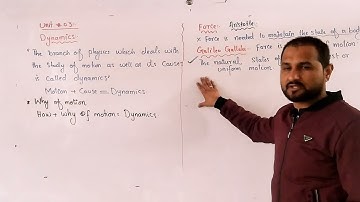 Unit # 03:
Dynamics
* The branch of physics which deals with
the study of motion as well as its Causes
is called dynamics
Motion + Cause = Dynamics
* Why of motion
How + Why of motion: Dynamics
Force: Aristotle:
× Force is needed to maintain the state of a bod
Galileo Galilei: Force is
✓ The natural states of est or
uniform motion